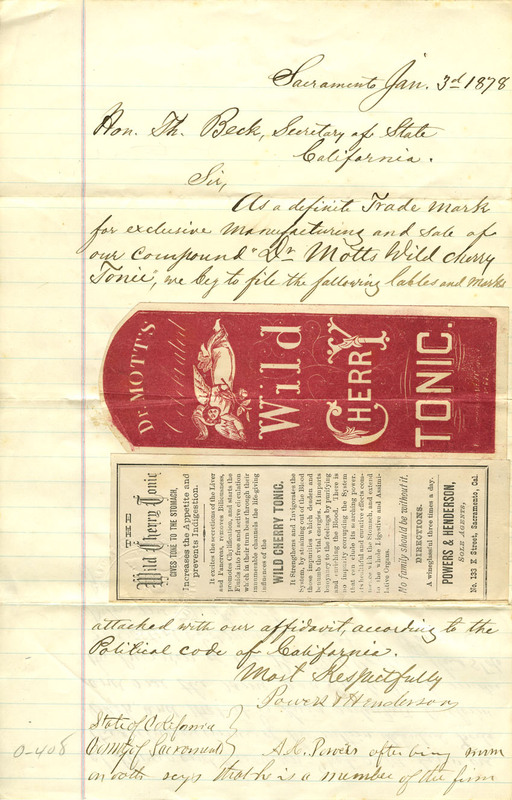 Sacramento Jan. 3rd 1878
Hon. Th. Beck, Secretary of State
California.
Sir,
As a definite Trade Mark
for exclusive manufacturing and sale of
our compound "Dr Motts Wild cherry
Tonic", we beg to file the following lables and marks
DR. MOTT'S
Celebrated
Wild
CHERRY
TONIC.
THE
Wild Cherry Tonic
GIVES TONE TO THE STOMACH,
Increases the Appetite and
prevents Indigestion.
It excites the secretions of the Liver
and Pancreas, removes Biliousness,
promotes Chylification, and starts the
Fluids into free and active circulation
which in their turn bear through their
innumerable channels the life-giving
influences of the
WILD CHERRY TONIC.
It Strengthens and Invigorates the
System, by straining out of the Blood
those impurities which deaden and
benumb the vital energies. It imparts
buoyancy to the feelings by purifying
and enriching the Blood. There is
no impurity corrupting the System
that can elude its searching power.
Its healthful and curative effects com-
mence with the Stomach, and extend
to the whole Digestive and Assimi-
lative Organs.
No family should be without it.
DIRECTIONS.
A wineglassful three times a day.
POWERS & HENDERSON,
SOLE AGENTS,
No. 133 K Street, Sacramento, Cal.
attached with our affidavit, according to the
Political code of California.
Most Respectfully
Powers & Henderson
State of California }
County of Sacramento }
A.C. Powers after being sworn
0-408
on oath says that he is a member of the firm